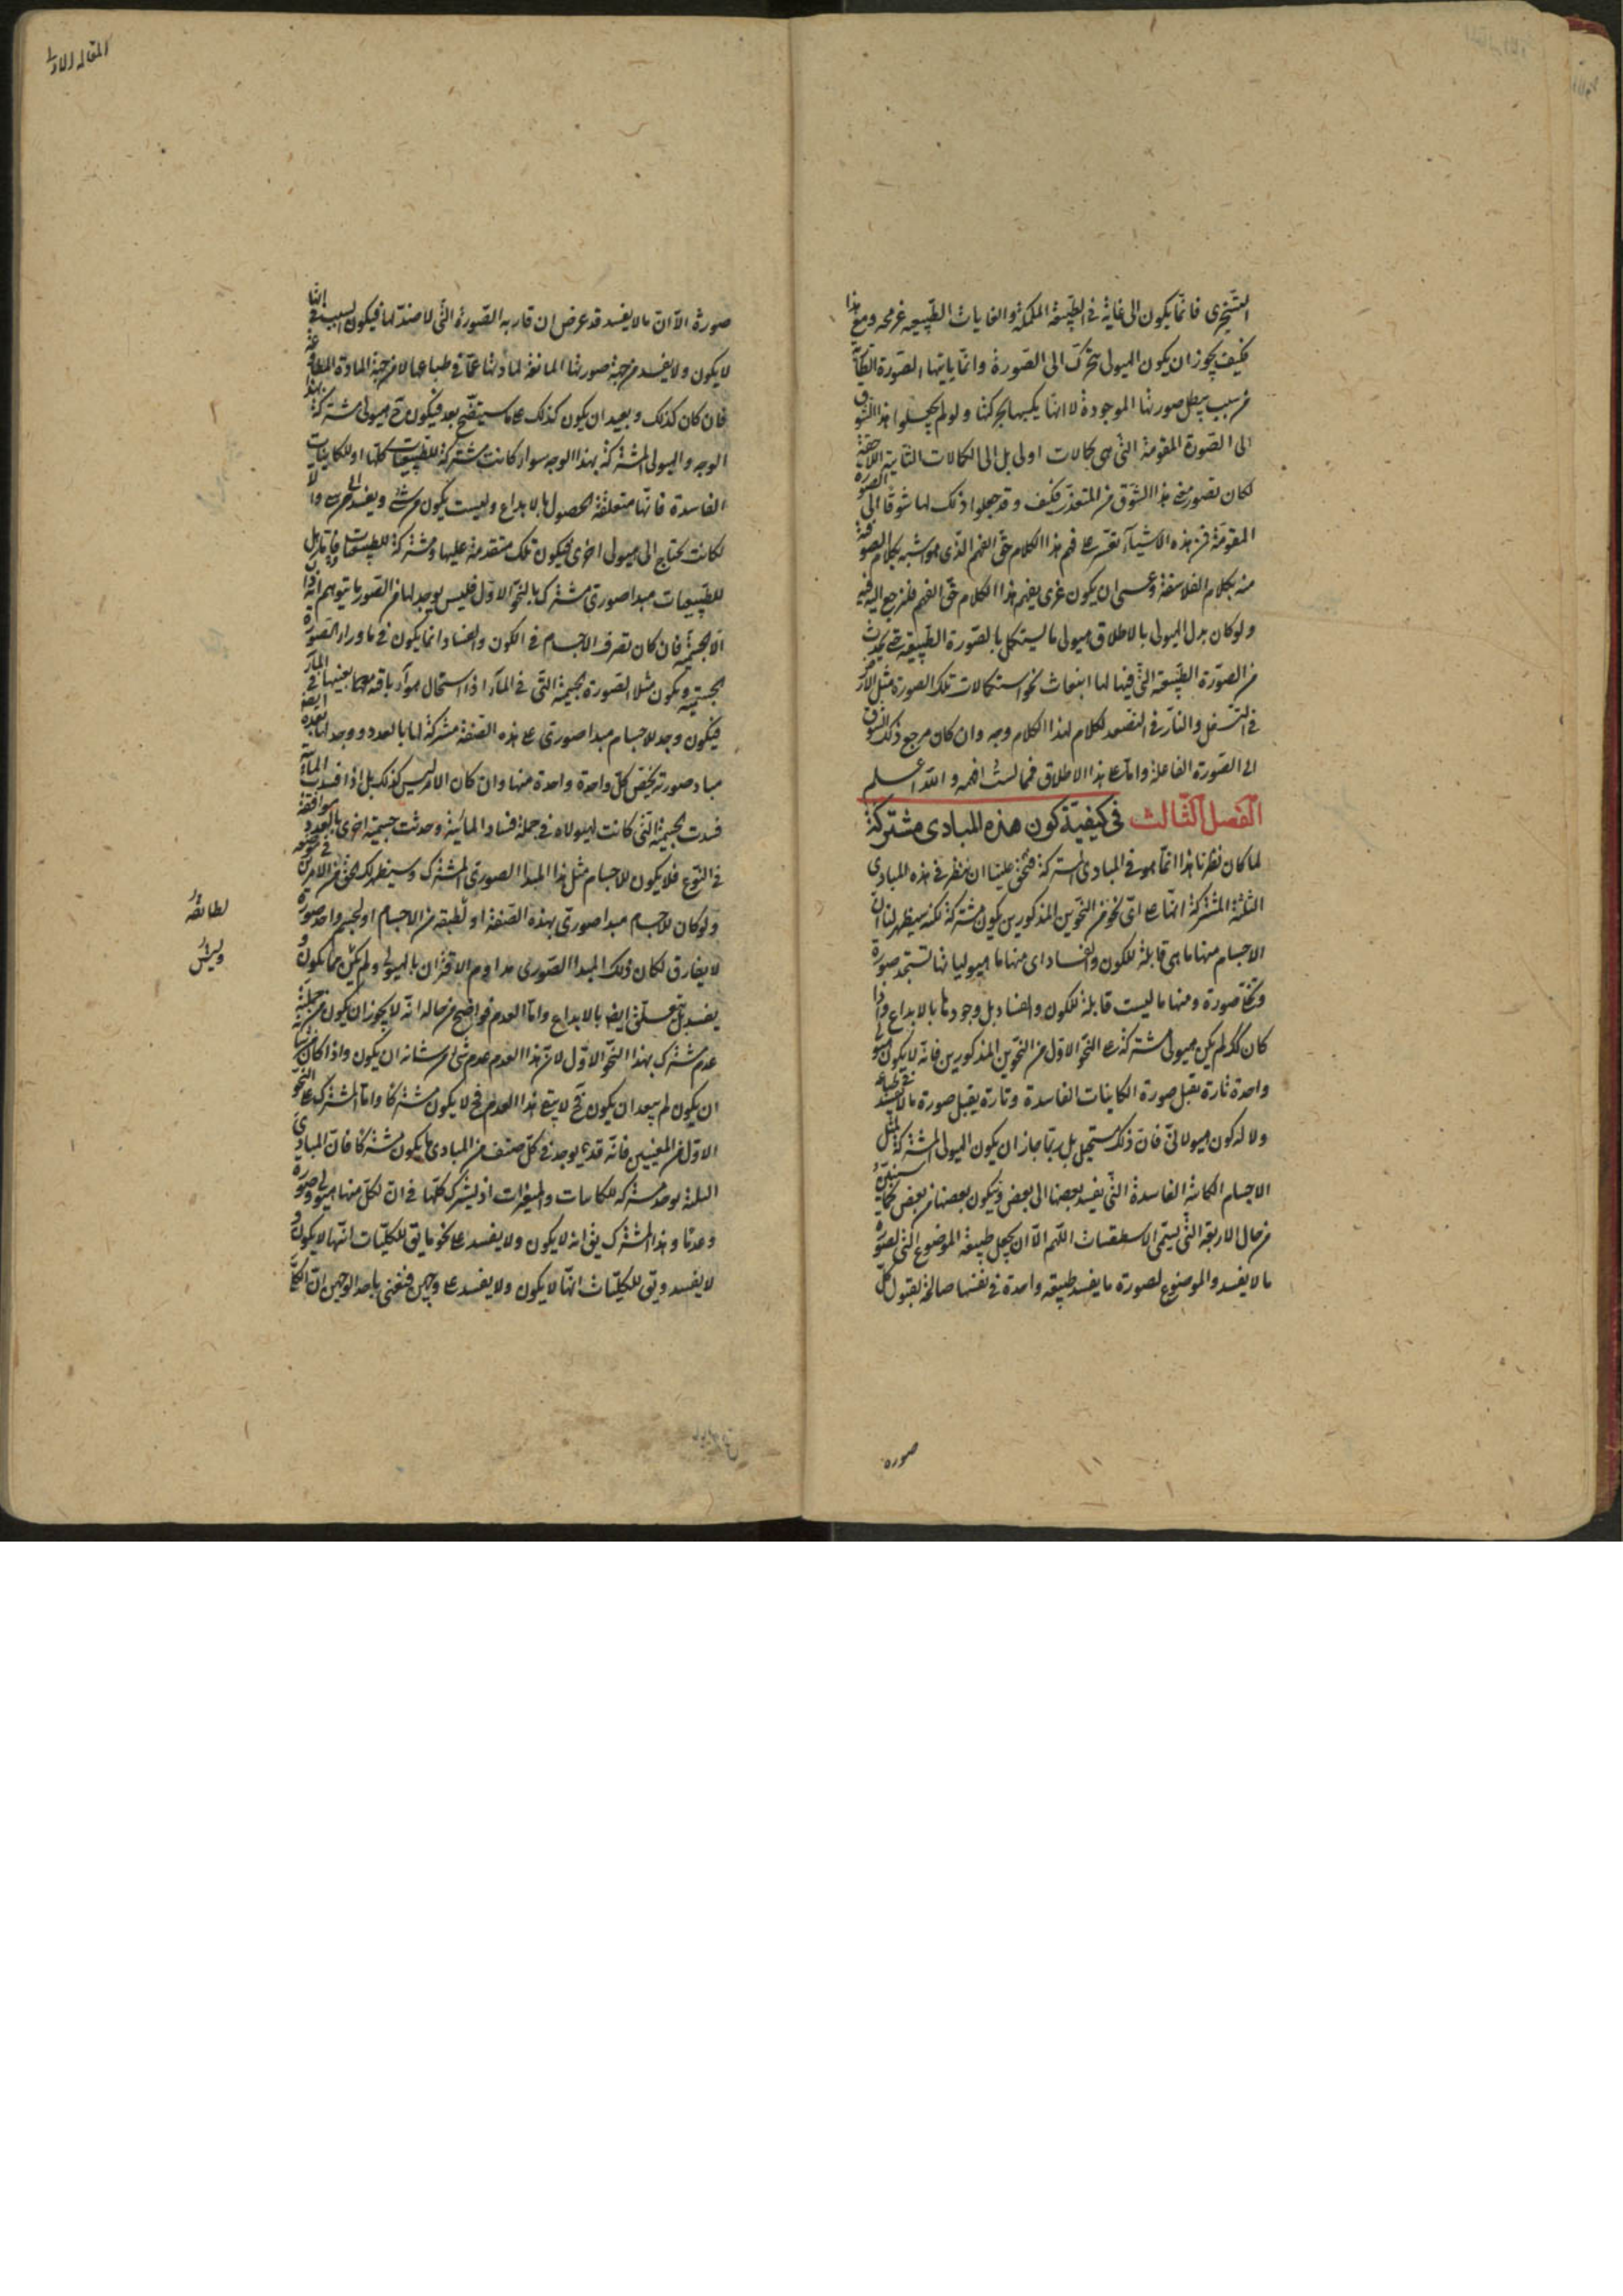 التسخيرى فانما يكون الى غاية فى الطبيعة الممكنة والغايات الطبيعية غير محه ومع هذا
فكيف يجوز ان يكون الهيولى يتحرك الى الصورة وانما ياتيها الصورة الطارية
من سبب يبطل صورتها الموجودة لا انها يكسبها بحركتها ولو لم يجعلوا هذا الشوق
الى الصورة المقومة التى هى كمالات اولى بل الى الكمالات الثانية اللاحقة
لكان تصور معنى هذا الشوق من المتعذر فكيف وقد جعلوا ذلك لها شوقا الى الصورة
المقومة فمن هذه الاشياء تعسر على فهم هذا الكلام حق الفهم الذى هو اشبه بكلام الصوفية
منه بكلام الفلاسفة وعسى ان يكون غيرى يفهم هذا الكلام حق الفهم فليرجع اليه فيه
ولو كان بدل الهيولى بالاطلاق هيولى ما يستكمل بالصورة الطبيعية حتى يحدث
من الصورة الطبيعية التى فيها لها انبعاث نحو استكمالات تلك الصورة مثل الارض
فى التسفل والنار فى التصعد لكان لهذا الكلام وجه وان كان مرجع ذلك الشوق
الى الصورة الفاعلة واما على هذا الاطلاق فما لست افهمه والله اعلم
الفصل الثالث فى كيفية كون هذه المبادى مشتركة
لما كان نظرنا هذا انما هو فى المبادى المشتركة فيحق علينا ان ننظر فى هذه المبادى
الثلثة المشتركة انها على اى نحو من النحوين المذكورين يكون مشتركة لكنه سيظهر لنا ان
الاجسام منها ما هى قابلة للكون والفساد اى منها ما هيولياتها تستجد صورة
وتخلى صورة ومنها ما ليست قابلة للكون والفساد بل وجودها بالابداع واذا
كان كك لم يكن هيولى مشتركة على النحو الاول من النحوين المذكورين فانه لا يكون هيولى
واحدة تارة تقبل صورة الكاينات الفاسدة وتارة يقبل صورة ما لا يفسد فى طباعه
ولا له كون هيولانى فان ذلك مستحيل بل ربما جاز ان يكون الهيولى المشتركة لمثل
الاجسام الكائنة الفاسدة التى يفسد بعضها الى بعض ويكون بعضها من بعض كما سنبين
من حال الاربعة التى يسمى الاسطقسات اللهم الا ان يجعل طبيعة الموضوع التى لصورة
ما لا يفسد والموضوع لصورة ما يفسد طبيعة واحدة فى نفسها صالحة لقبول كل
صورة
المقالة الاولى
صورة الا ان ما لا يفسد قد عرض ان قارنه الصورة التى لا ضد لها فيكون السبب فى انها
لا يكون ولا يفسد من جهة صورتها المانعة لمادتها عما فى طباعها لا من جهة المادة المطاوعة
فان كان كذلك وبعيد ان يكون كذلك على ما سيتضح بعد فيكون ح هيولى مشتركة بهذا
الوجه والهيولى المشتركة بهذا الوجه سواء كانت مشتركة للطبيعيات كلها او للكاينات
الفاسدة فانها متعلقة الحصول بالابداع وليست يكون من شئ ويفسد الى شئ والا
لكانت يحتاج الى هيولى اخرى فيكون تلك متقدمة عليها ومشتركة للطبيعيات واما هل
للطبيعيات مبدا صورى مشترك بالنحو الاول فليس يوجد لها من الصور ما يتوهم انه ذا
الا الجسمية فان كان تصرف الاجسام فى الكون والفساد انما يكون فى ما وراء الصورة
الجسمية ويكون مثلا الصورة الجسمية التى فى الماء اذا استحال هواء باقية بعينها فى الماء
فيكون وجد للاجسام مبدا صورى على هذه الصفة مشتركة لها بالعدد ووجد لها بعده ايضا
مباد صورية يخص كل واحدة واحدة منها وان كان الامر ليس كذلك بل اذا فسدت المائية
فسدت الجسمية التى كانت لهيولاه فى جملة فساد المائية وحدثت جسمية اخرى بالعدد موافقة
فى النوع فلا يكون للاجسام مثل هذا المبدا الصورى المشترك وسيظهر لك الحق من الامرين فى موضعه
ولو كان للاجسام مبدا صورى بهذه الصفة او لطبقة من الاجسام او لجسم واحد صورة
لا يفارق لكان ذلك المبدا الصورى مداوم الاقتران بالهيولى ولم يكن مما يكون و
يفسد بل يتعلق ايضا بالابداع واما العدم فواضح من حاله انه لا يجوز ان يكون من جملته
عدم مشترك بهذا النحو الاول لان هذا العدم عدم شئ من شانه ان يكون واذا كان من شانه
ان يكون لم يبعد ان يكون فح لا يبقى هذا العدم فح لا يكون مشتركا واما المشترك على النحو
الاول من المعنيين فانه قد يوجد فى كل صنف من المبادى ما يكون مشتركا فان المبادى
الثلثة يوجد مشتركة للكاينات والمتغيرات اذ يشترك كلها فى ان لكل منها هيولى وصورة
وعدما وهذا المشترك يق انه لا يكون ولا يفسد على نحو ما يق للكليات انها لا يكون و
لا يفسد ويق للكليات انها لا يكون ولا يفسد على وجهين فنعنى باحد الوجهين ان الكلى
لطائفة
وليس